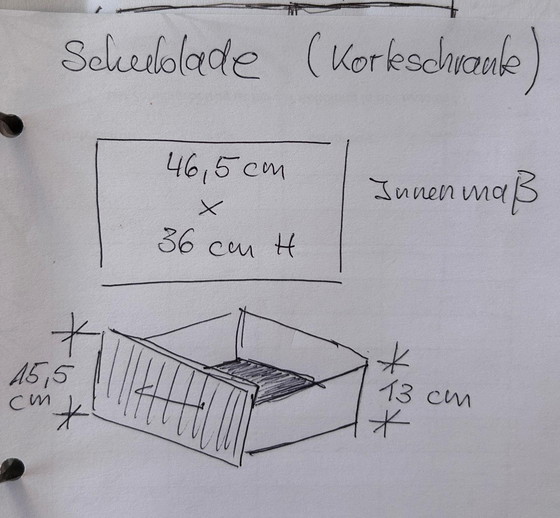 Schublade (Korkschrank)
46,5 cm
x
36 cm H
Innenmaß
15,5
cm
13 cm